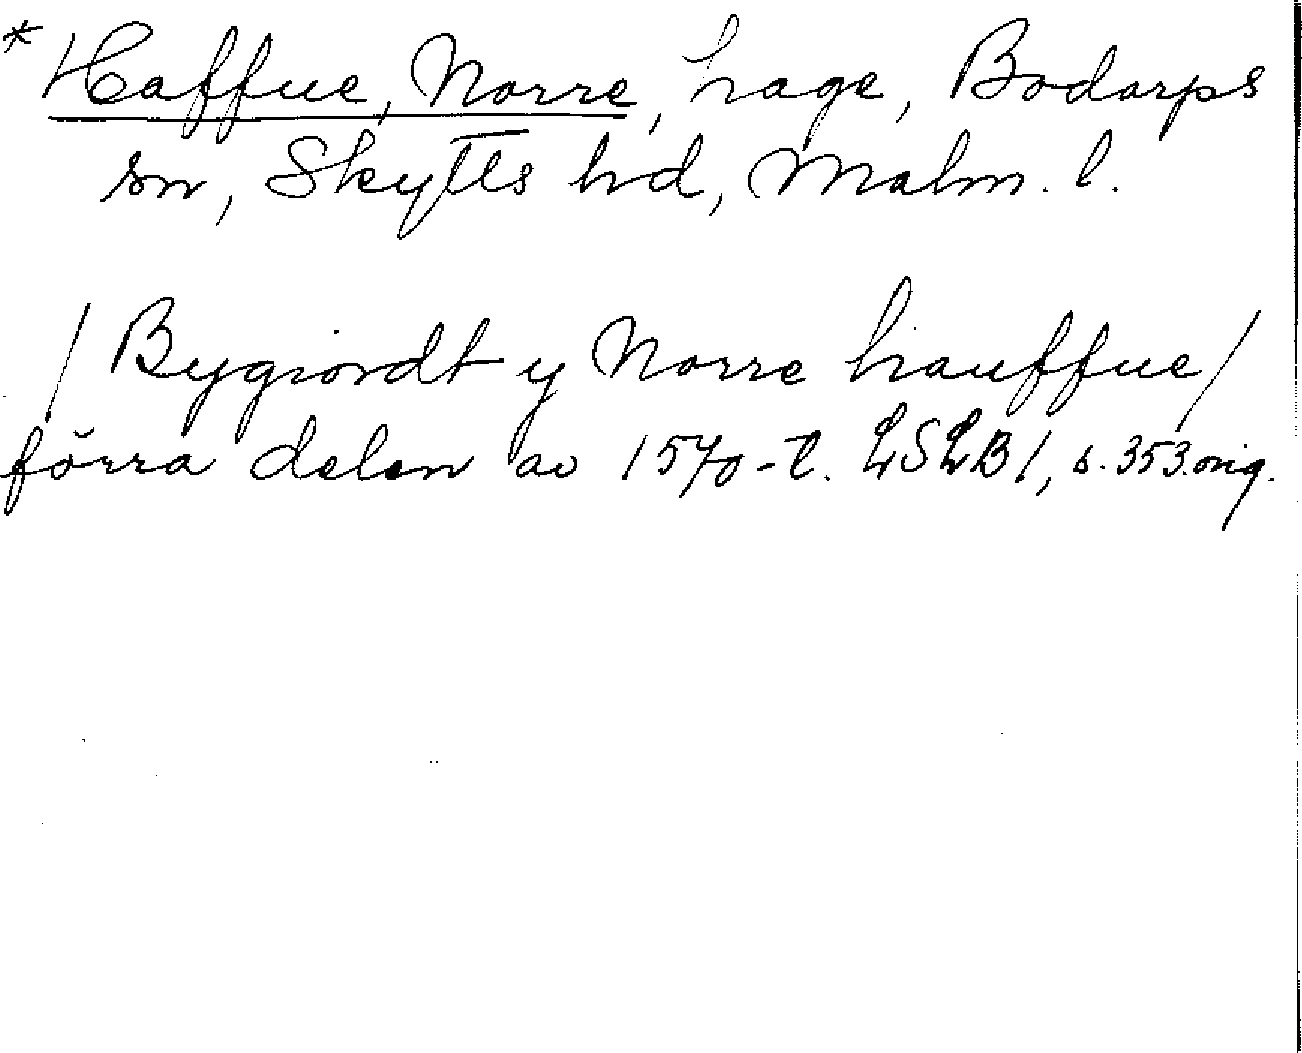 * Haffue, Norre, hage, Bodarps
sn, Skytts hd, Malm. l.
/ Bygiordt y Norre hauffue /
förra delen av 1570-t. LSLB 1, s. 353. orig.